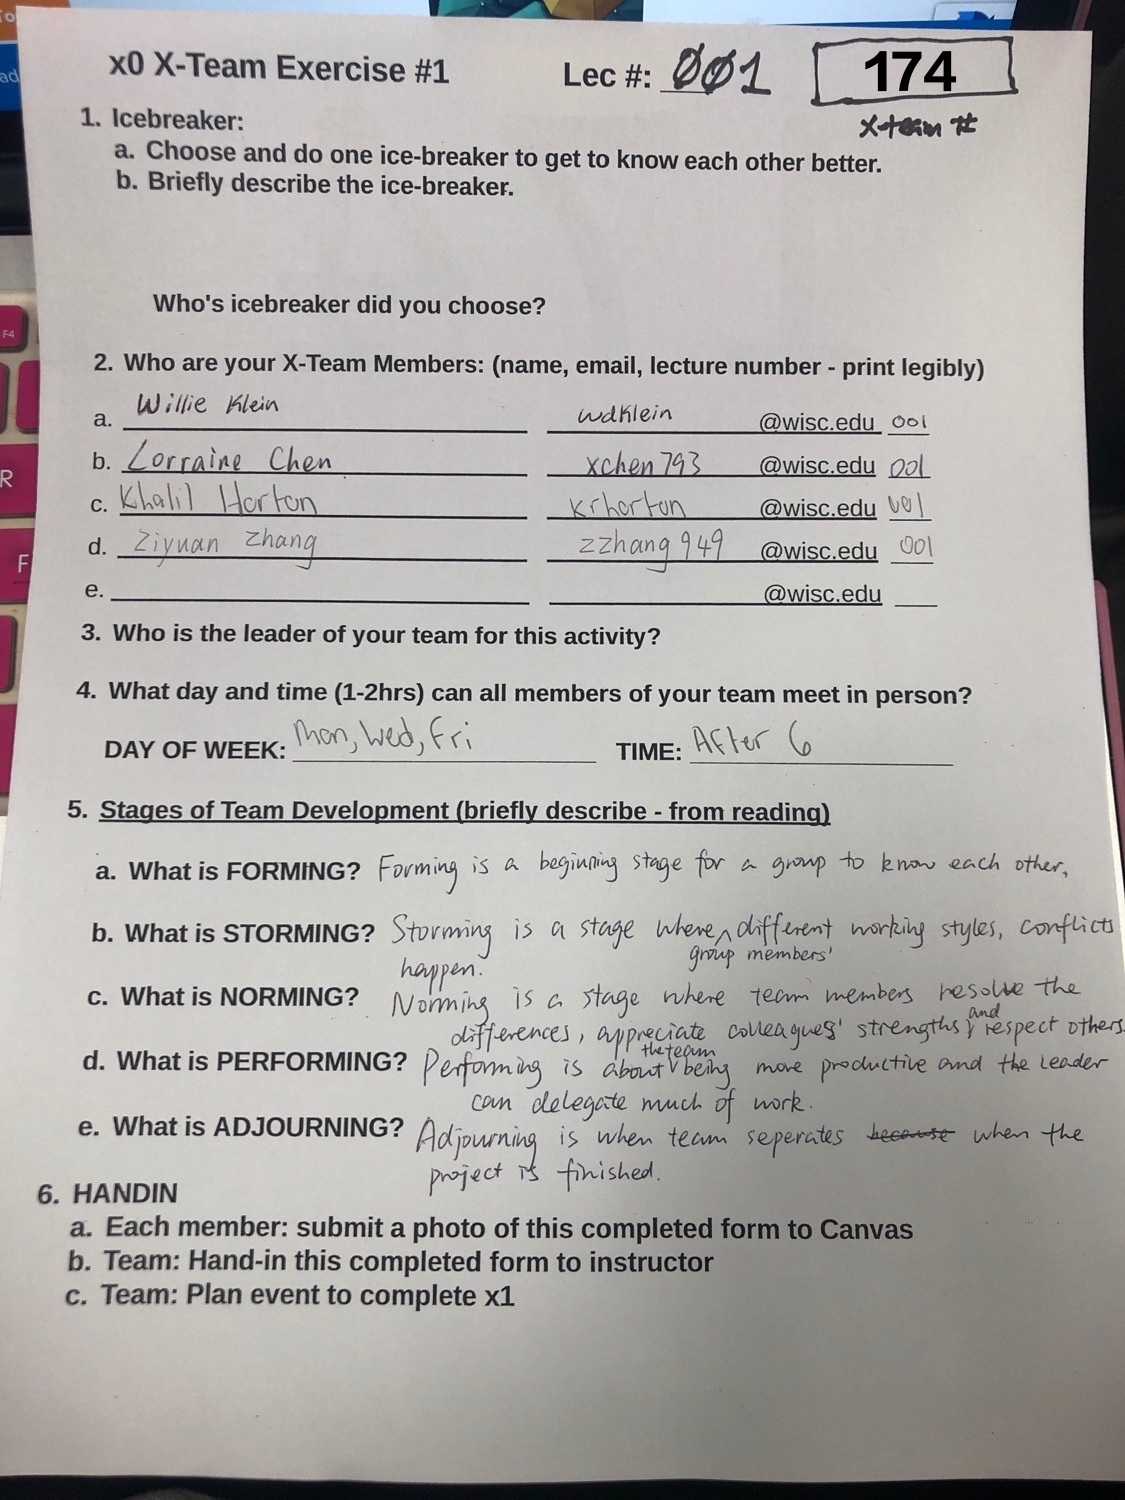 x0 X-Team Exercise #1 Lec #: 001 174
X-team #
1. Icebreaker:
a. Choose and do one ice-breaker to get to know each other better.
b. Briefly describe the ice-breaker.
Who's icebreaker did you choose?
2. Who are your X-Team Members: (name, email, lecture number - print legibly)
a. Willie Klein wdklein @wisc.edu 001
b. Lorraine Chen xchen793 @wisc.edu 001
c. Khalil Horton krhorton @wisc.edu 001
d. Ziyuan Zhang zzhang949 @wisc.edu 001
e. @wisc.edu
3. Who is the leader of your team for this activity?
4. What day and time (1-2hrs) can all members of your team meet in person?
DAY OF WEEK: Mon, Wed, Fri TIME: After 6
5. Stages of Team Development (briefly describe - from reading)
a. What is FORMING? Forming is a beginning stage for a group to know each other,
b. What is STORMING? Storming is a stage where ^ different working styles, conflicts
group members'
happen.
c. What is NORMING? Norming is a stage where team members resolve the
differences, appreciate colleagues' strengths and respect others.
d. What is PERFORMING? Performing is about the team being more productive and the leader
can delegate much of work.
e. What is ADJOURNING? Adjourning is when team seperates because when the
project is finished.
6. HANDIN
a. Each member: submit a photo of this completed form to Canvas
b. Team: Hand-in this completed form to instructor
c. Team: Plan event to complete x1
F4
R
F